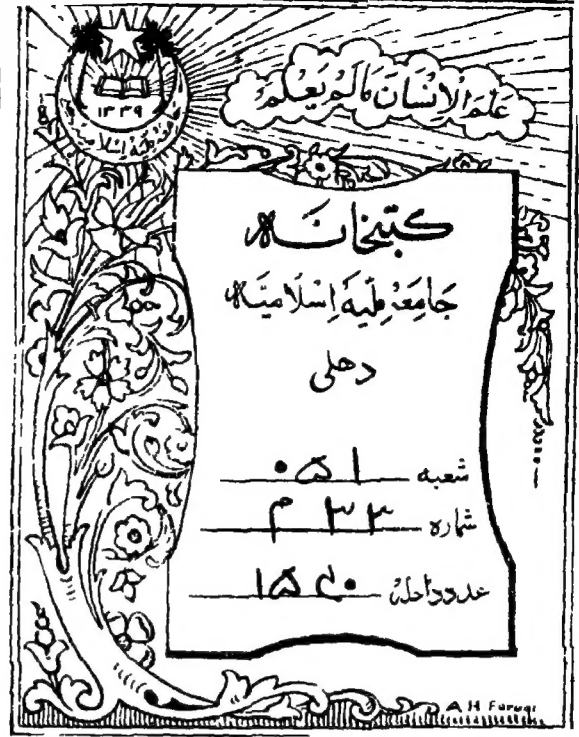 ١٣٣٩
عَلَّمَ الْاِنْسَانَ مَالَمْ يَعْلَمْ
کتبخانہ
جامعہ ملیہ اسلامیہ
دهلی
شعبہ ۰۵۱
شمارہ ۳۳ م
عدد داخلہ
A H Faruqi